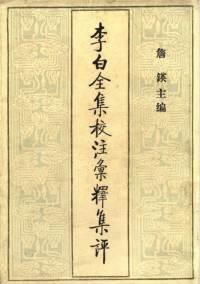 李白全集校注彙釋集評
詹鍈主編